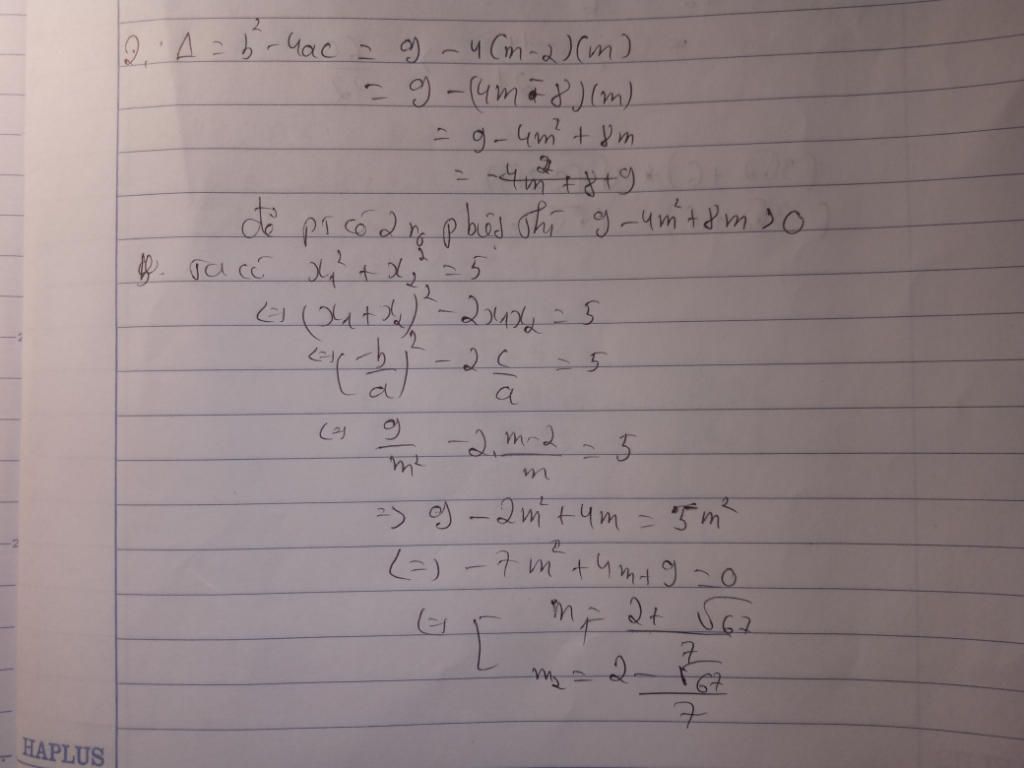 2. Δ = b² - 4ac = 9 - 4(m-2)(m)
= 9 - (4m - 8)(m)
= 9 - 4m² + 8m
= -4m² + 8 + 9
để pt có 2 ng pbiệt thì 9 - 4m² + 8m > 0
ta có x₁² + x₂² = 5
(=) (x₁ + x₂)² - 2x₁x₂ = 5
(=) (-b/a)² - 2 c/a = 5
(=) 9/m² - 2. m-2/m = 5
=> 9 - 2m² + 4m = 5m²
(=) - 7m² + 4m + 9 = 0
(=) [ m₁ = 2 + √67 / 7
m₂ = 2 - √67 / 7
HAPLUS